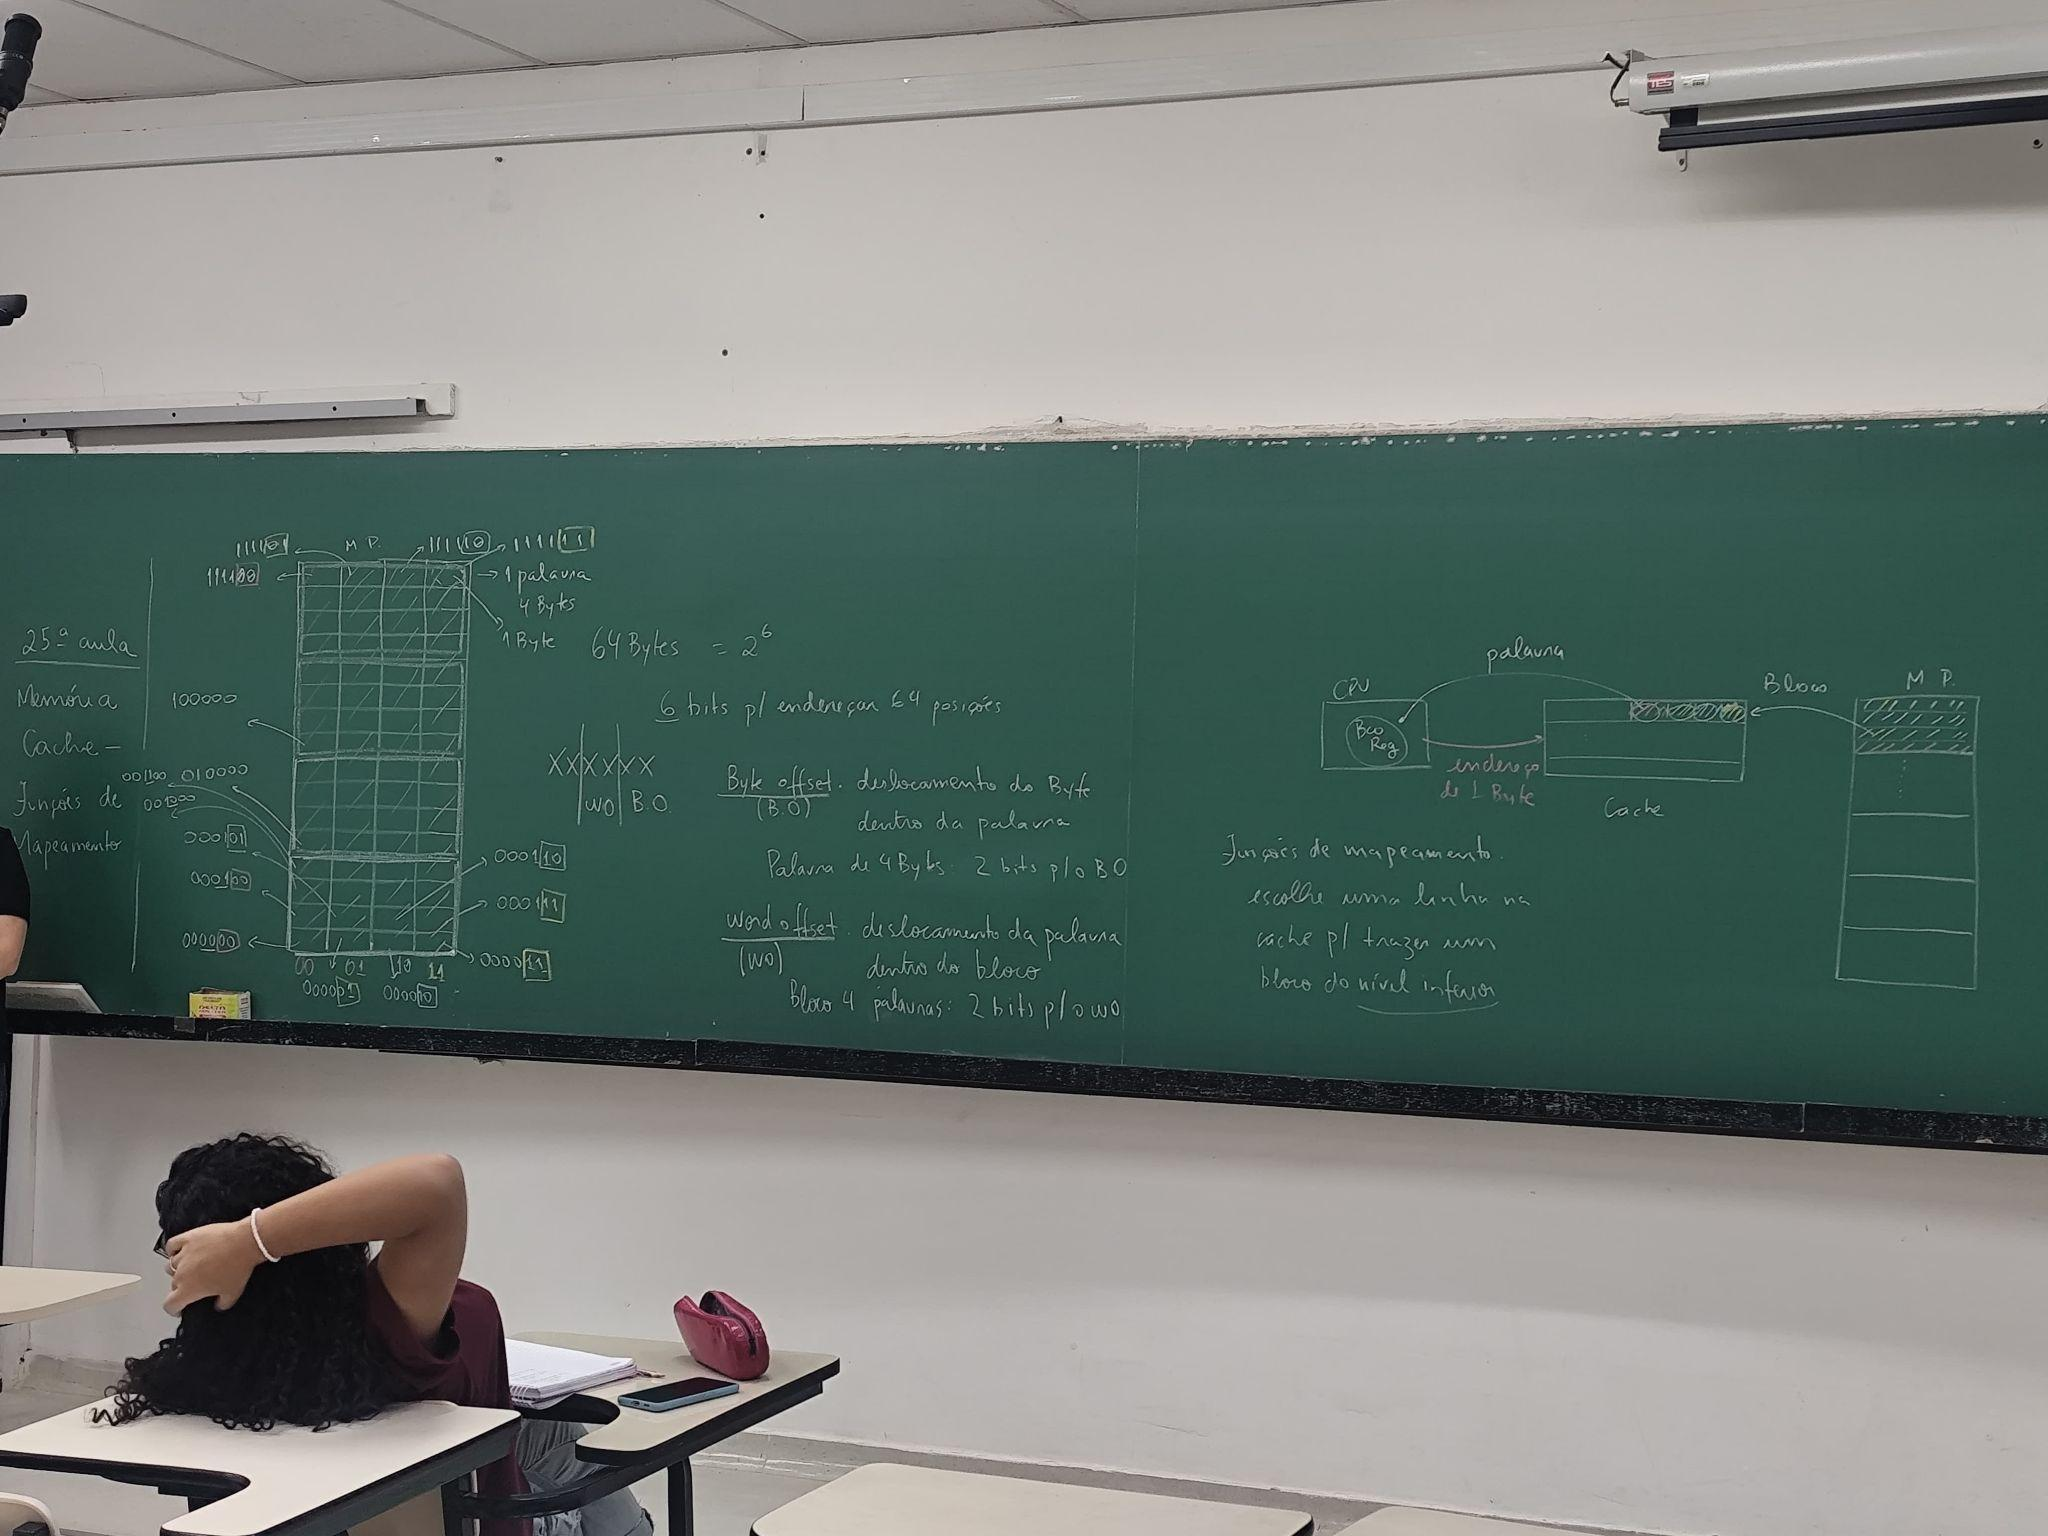 25ª aula
Memória
Cache -
Funções de
Mapeamento
M P.
111101
111110
111111
111100
1 palavra
4 Bytes
1 Byte
100000
001100
010000
001000
000101
000100
000000
000110
000111
000011
00 01 10 11
000001
000010
64 Bytes = 2⁶
6 bits p/ endereçar 64 posições
XX XX XX
WO B.O.
Byte offset. deslocamento do Byte
(B.O)
dentro da palavra
Palavra de 4 Bytes: 2 bits p/ o BO
word offset. deslocamento da palavra
(WO)
dentro do bloco
Bloco 4 palavras: 2 bits p/ o WO
palavra
CPU
Bco
Reg
endereço
de 1 Byte
Cache
Bloco
M P.
Funções de mapeamento.
escolhe uma linha na
cache p/ trazer um
bloco do nível inferior
TES